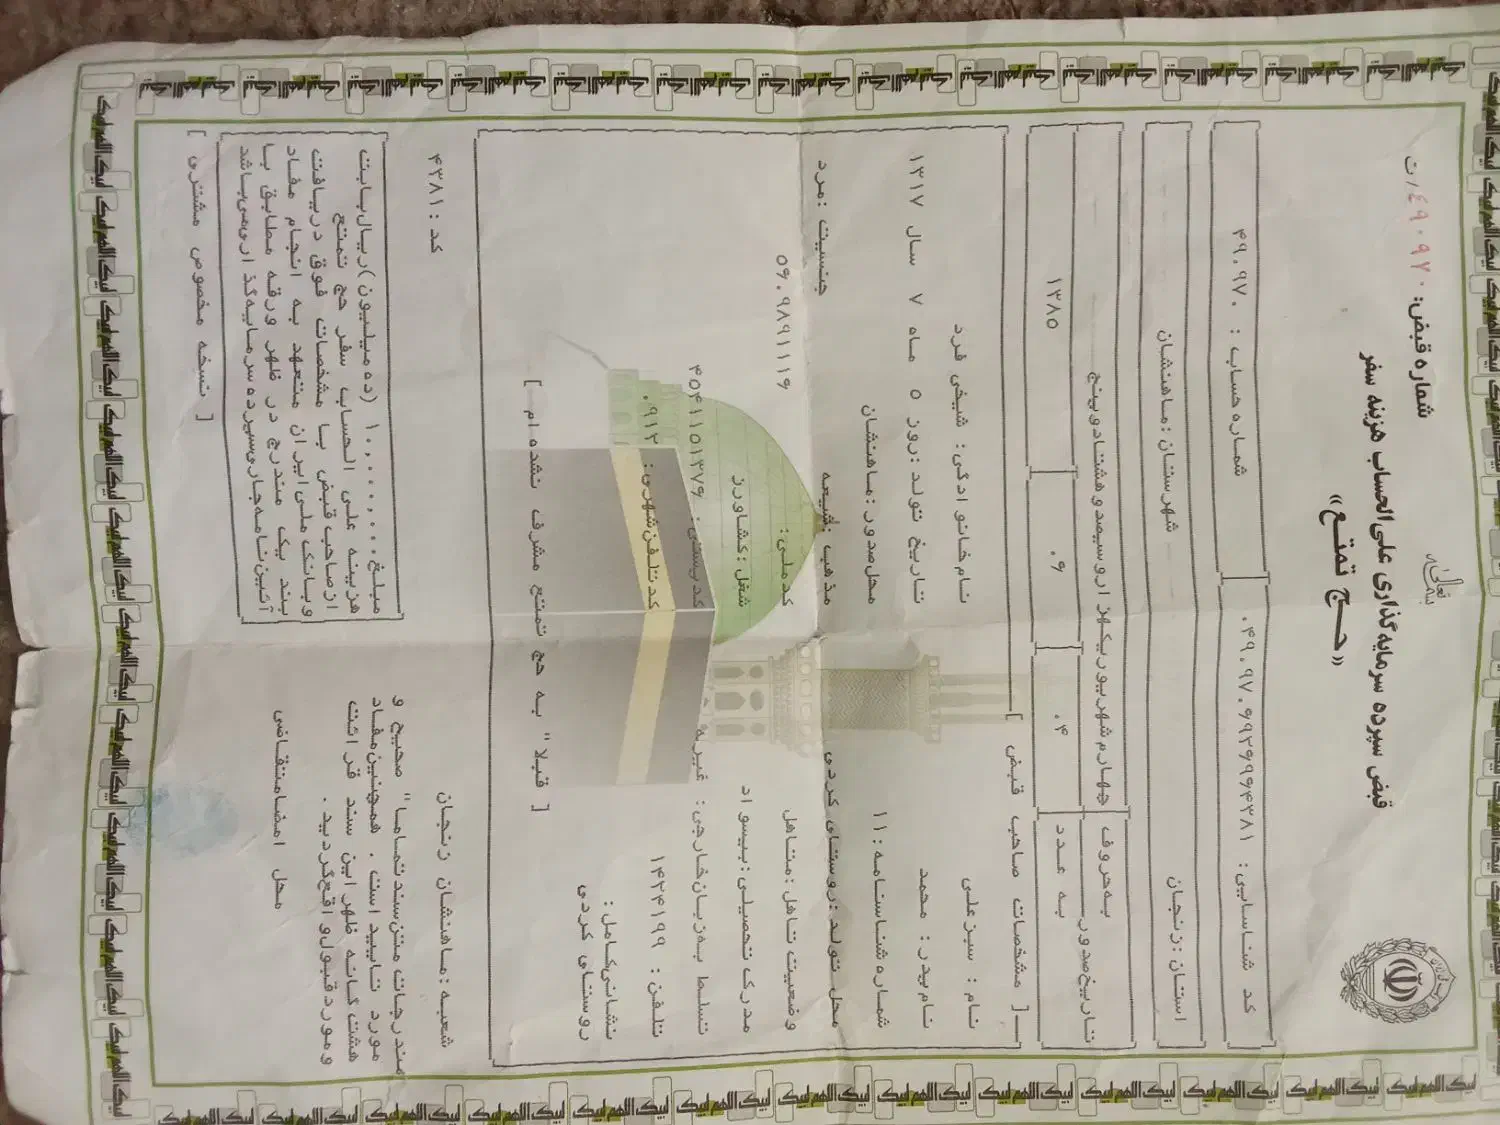 بسمه تعالی
شماره قبض: ۴۹۰۹۷۰/ت
قبض سپرده سرمایه گذاری علی الحساب هزینه سفر
«حج تمتع»
کد شناسایی: ۰۴۹۰۹۷۰۶۹۳۶۹۶۴۳۸۱ شماره حساب: ۴۹۰۹۷۰
استان: زنجان شهرستان: ماهنشان
به حروف چهارم شهریور یکهزار و سیصد و هشتاد و پنج
تاریخ صدور
به عدد ۰۴ ۰۶ ۱۳۸۵
[ مشخصات صاحب قبض ]
نام: سبزعلی نام خانوادگی: شیخی فرد
نام پدر: محمد تاریخ تولد: روز ۵ ماه ۷ سال ۱۳۱۷
شماره شناسنامه: ۱۱ محل صدور: ماهنشان
محل تولد: روستای کردی مذهب: شیعه جنسیت: مرد
وضعیت تاهل: متاهل کد ملی: ۵۶۰۹۸۹۱۱۱۶
مدرک تحصیلی: بیسواد شغل: کشاورز
تسلط به زبان خارجی: غیره کد پستی: ۴۵۴۱۱۵۱۳۷۶
تلفن: ۱۴۲۴۱۹۹ کد تلفن شهری: ۰۹۱۲
نشانی کامل:
روستای کردی
[ قبلا" به حج تمتع مشرف نشده ام ]
شعبه: ماهنشان زنجان کد: ۴۳۸۱
مندرجات متن سند تماما" صحیح و
مورد تایید است . همچنین مفاد
هشت گانه ظهر این سند قرائت
و مورد قبول واقع گردید .
محل امضا متقاضی
مبلغ ۱۰,۰۰۰,۰۰۰ (ده میلیون) ریال بابت
هزینه علی الحساب سفر حج تمتع
از صاحب قبض با مشخصات فوق دریافت
و بانک ملی ایران متعهد به انجام مفاد
بند یک مندرج در ظهر ورقه مطابق با
آئین نامه جاری سپرده سرمایه گذاری می باشد
[ نسخه مخصوص مشتری ]
لبیک اللهم لبیک